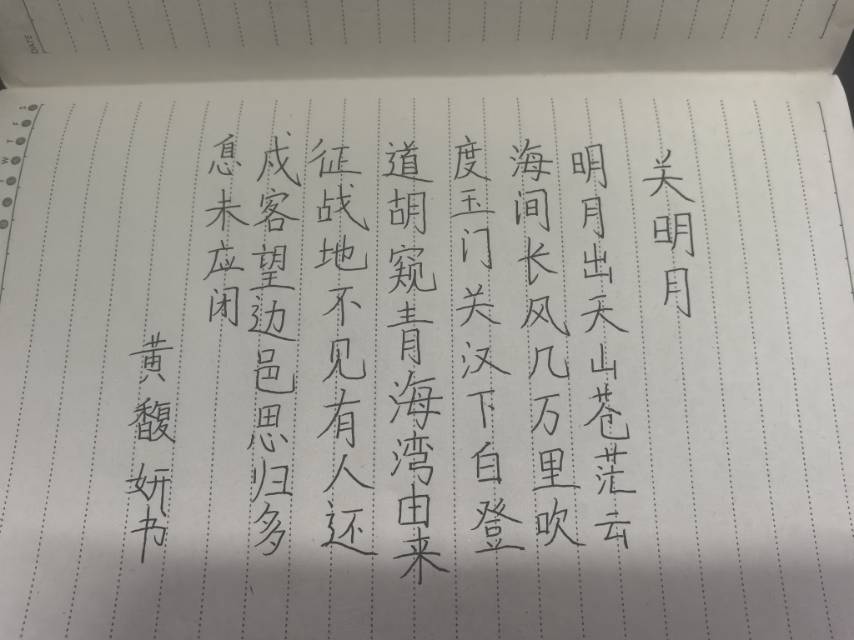 关明月
明月出天山苍茫云
海间长风几万里吹
度玉门关汉下白登
道胡窥青海湾由来
征战地不见有人还
戍客望边邑思归多
息未应闭
黄馥妍书